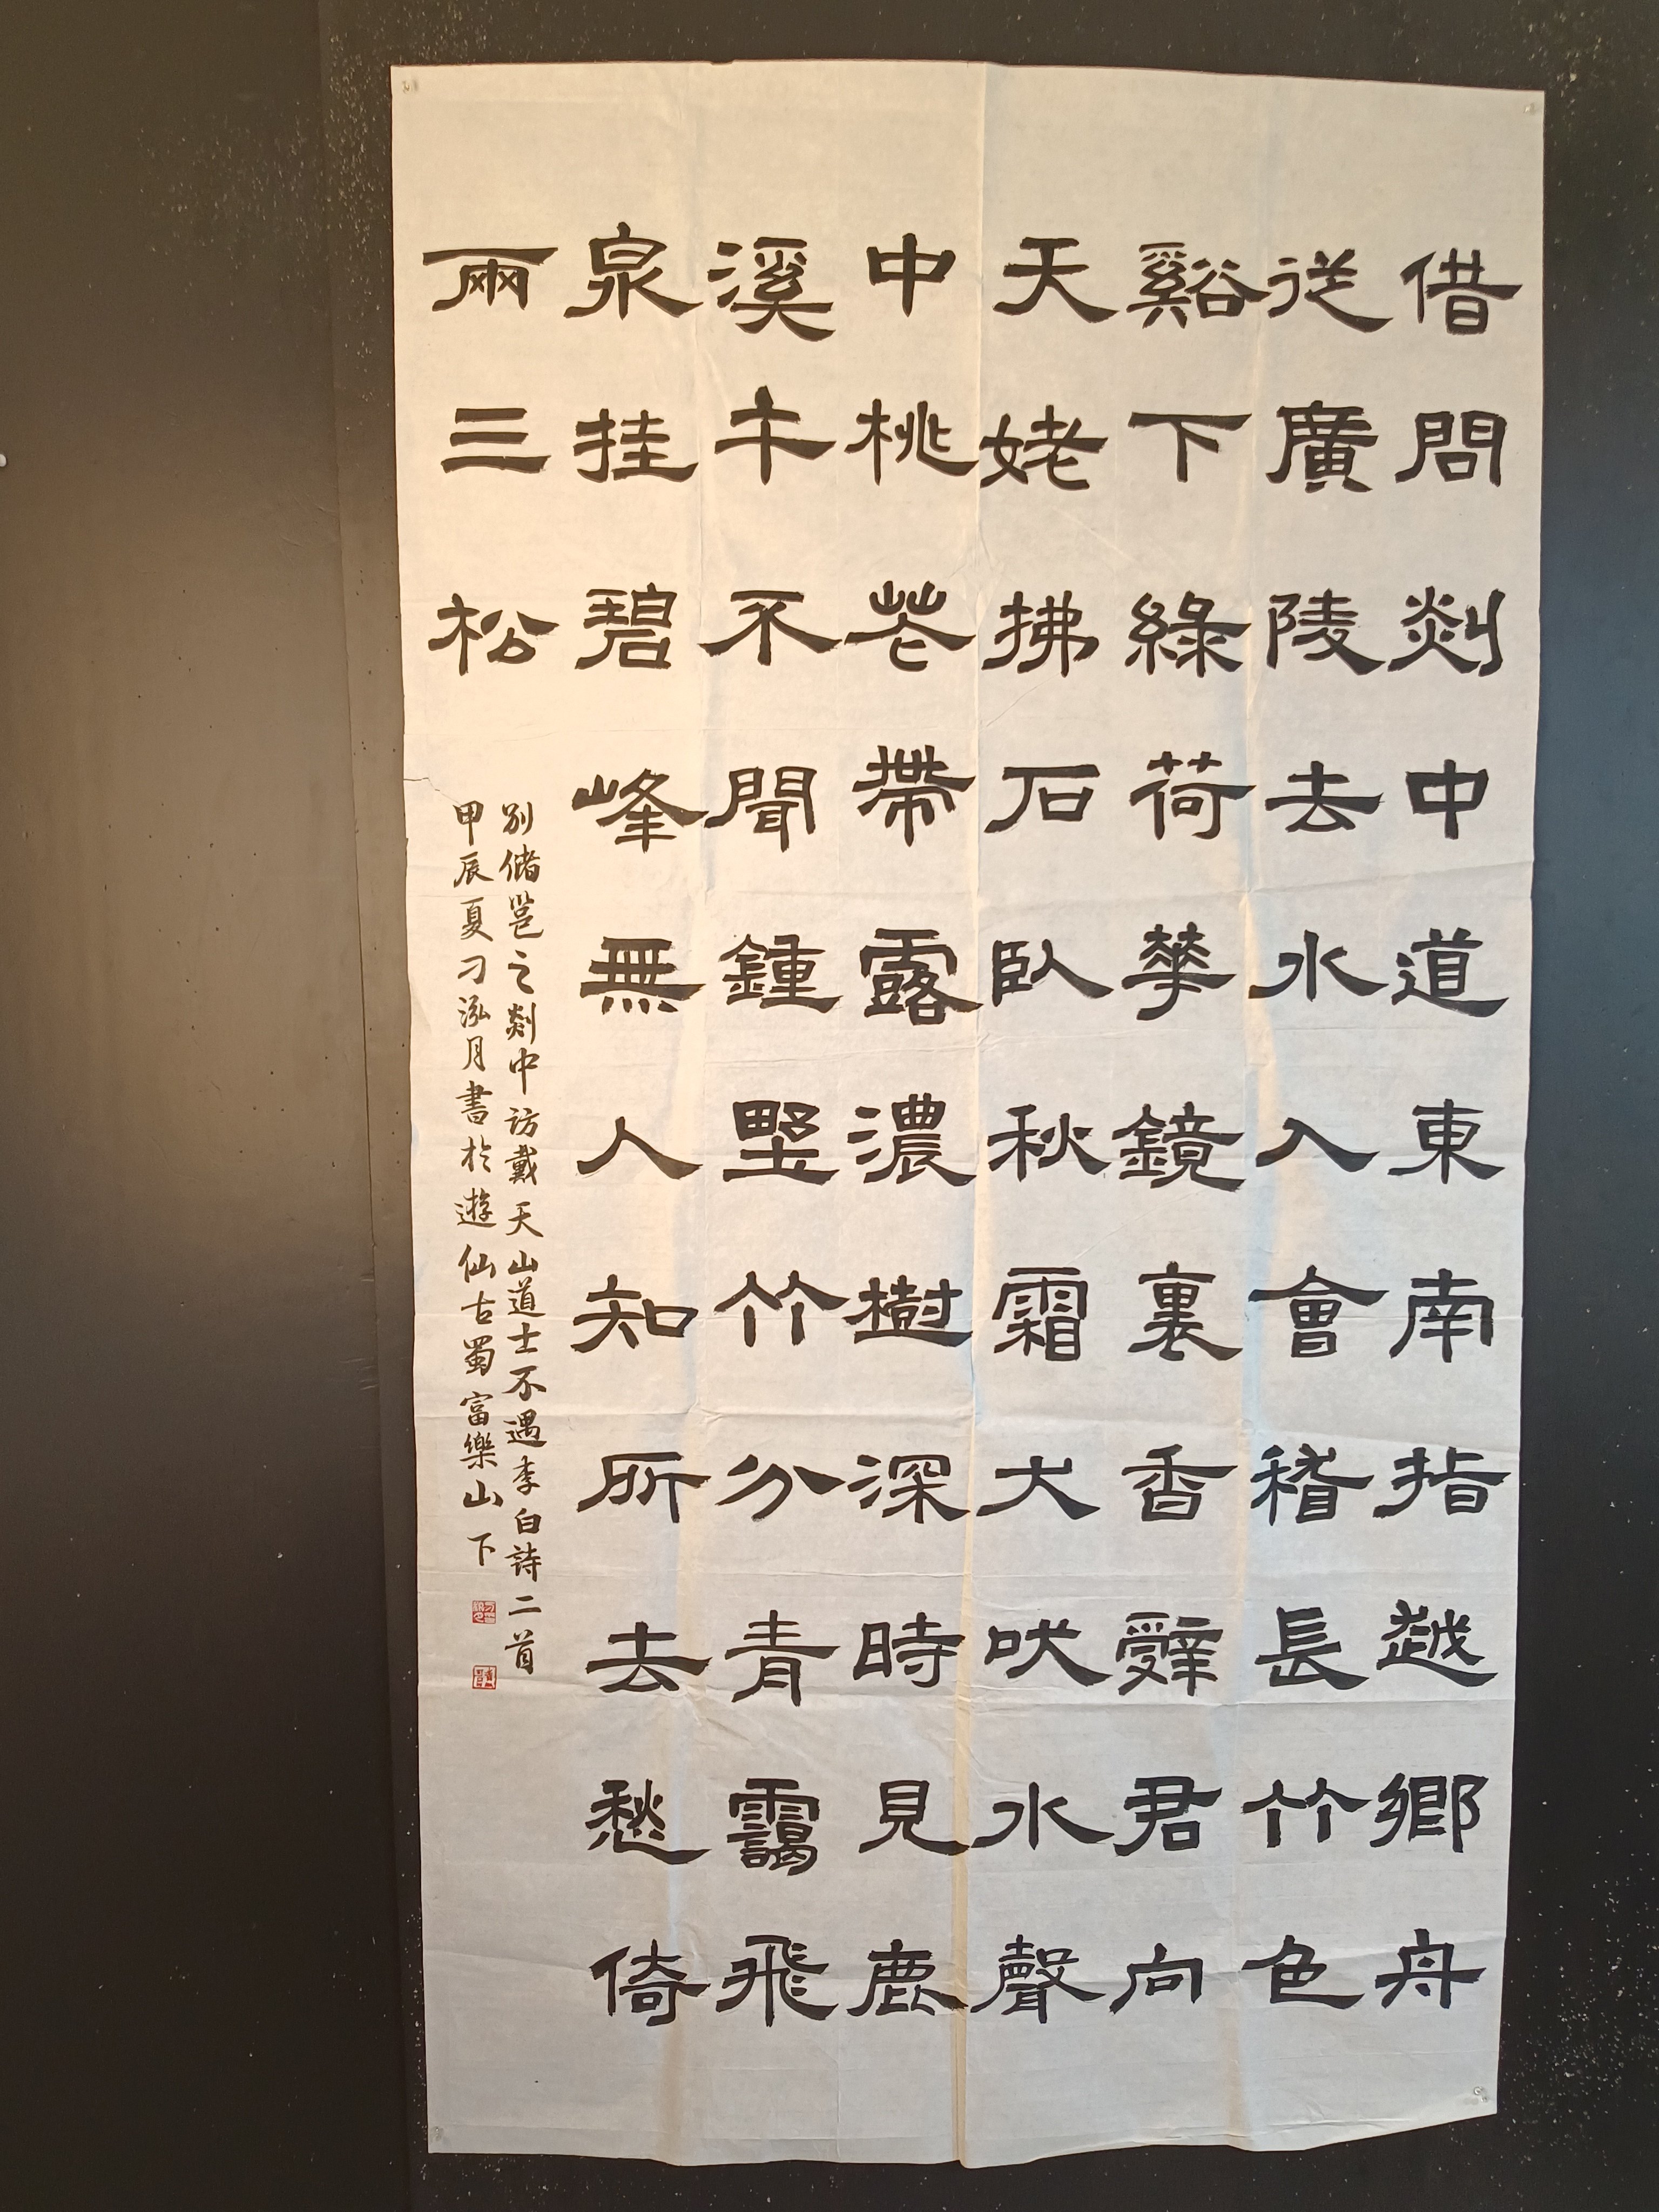 借問剡中道東南指越鄉舟
從廣陵去水入會稽長竹色
谿下綠荷華鏡裏香辭君向
天姥拂石臥秋霜犬吠水聲
中桃花帶露濃樹深時見鹿
溪午不聞鍾埜竹分青靄飛
泉挂碧峰無人知所去愁倚
兩三松
別儲邕之剡中訪戴天山道士不遇李白詩二首
甲辰夏刁泓月書於遊仙古蜀富樂山下